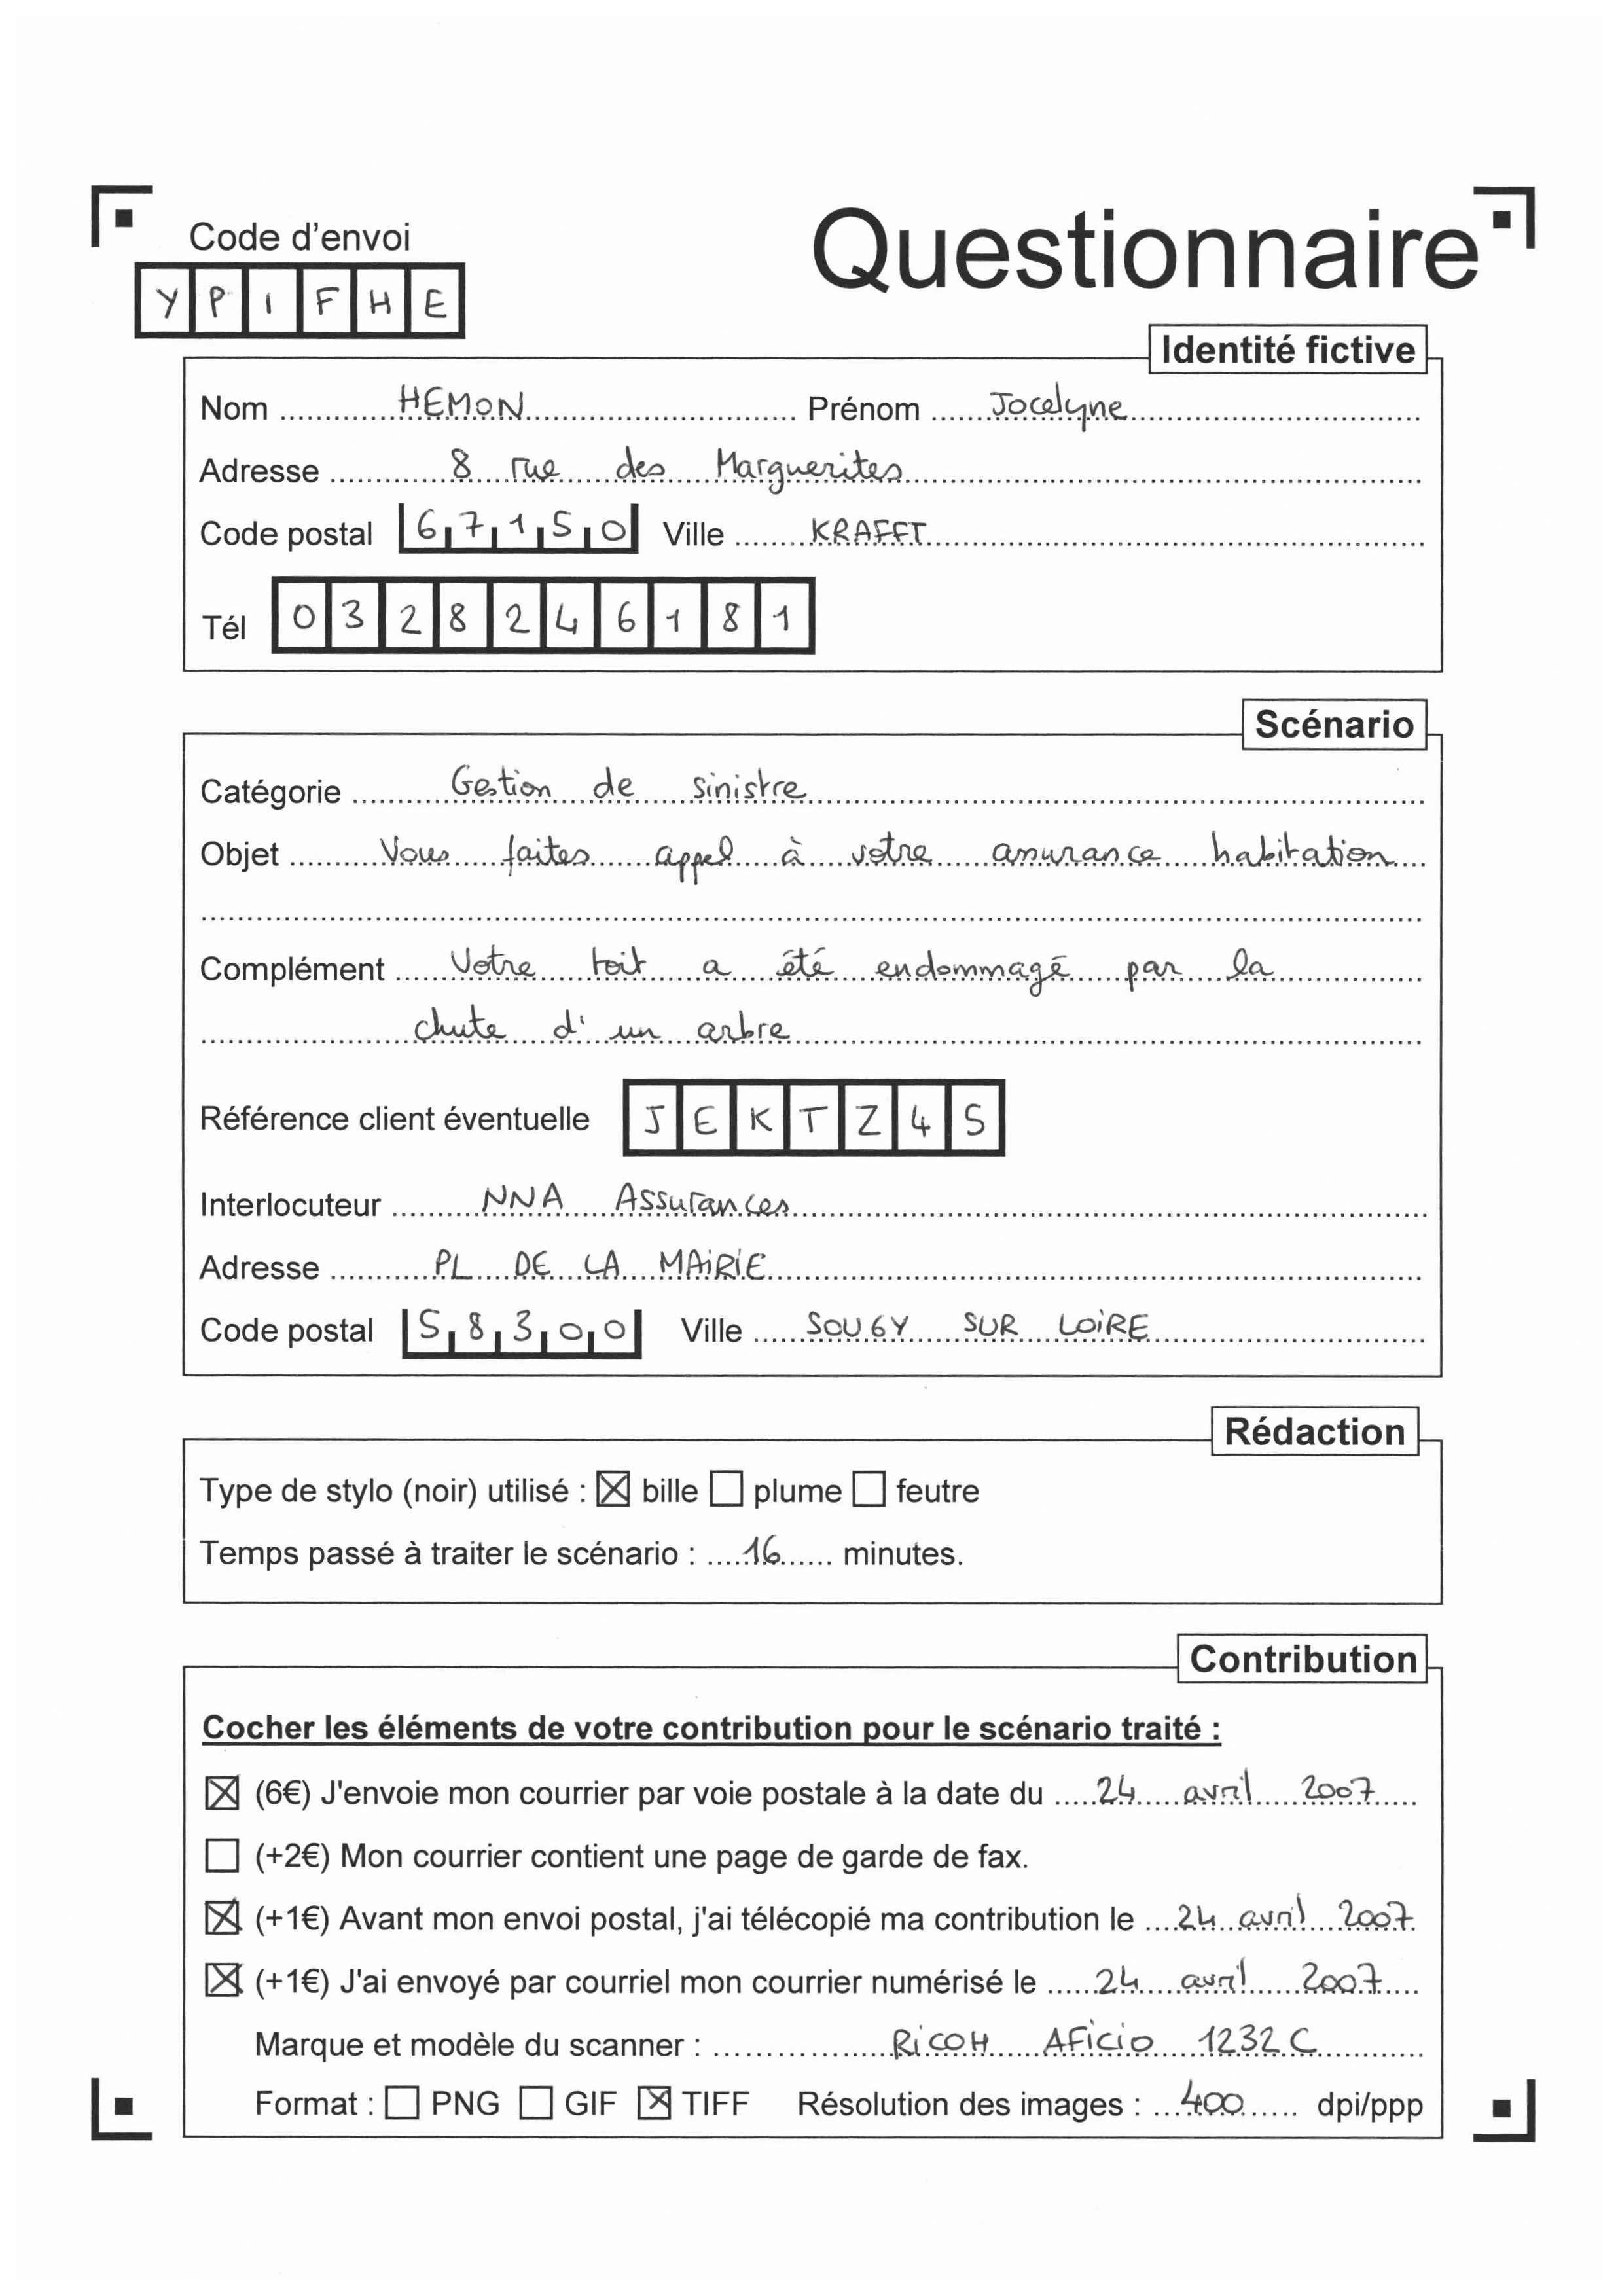 Code d'envoi
Questionnaire
Y P I F H E
Identité fictive
Nom HEMON Prénom Jocelyne
Adresse 8 rue des Marguerites
Code postal 67150 Ville KRAFFT
Tél 0328246181
Scénario
Catégorie Gestion de sinistre
Objet Vous faites appel à votre assurance habitation
Complément Votre toit a été endommagé par la
chute d'un arbre
Référence client éventuelle JEKTZ45
Interlocuteur NNA Assurances
Adresse PL DE LA MAIRIE
Code postal 58300 Ville SOUGY SUR LOIRE
Rédaction
Type de stylo (noir) utilisé : ☒ bille ☐ plume ☐ feutre
Temps passé à traiter le scénario : 16 minutes.
Contribution
Cocher les éléments de votre contribution pour le scénario traité :
☒ (6€) J'envoie mon courrier par voie postale à la date du 24 avril 2007
☐ (+2€) Mon courrier contient une page de garde de fax.
☒ (+1€) Avant mon envoi postal, j'ai télécopié ma contribution le 24 avril 2007
☒ (+1€) J'ai envoyé par courriel mon courrier numérisé le 24 avril 2007
Marque et modèle du scanner : RICOH AFICIO 1232C
Format : ☐ PNG ☐ GIF ☒ TIFF Résolution des images : 400 dpi/ppp